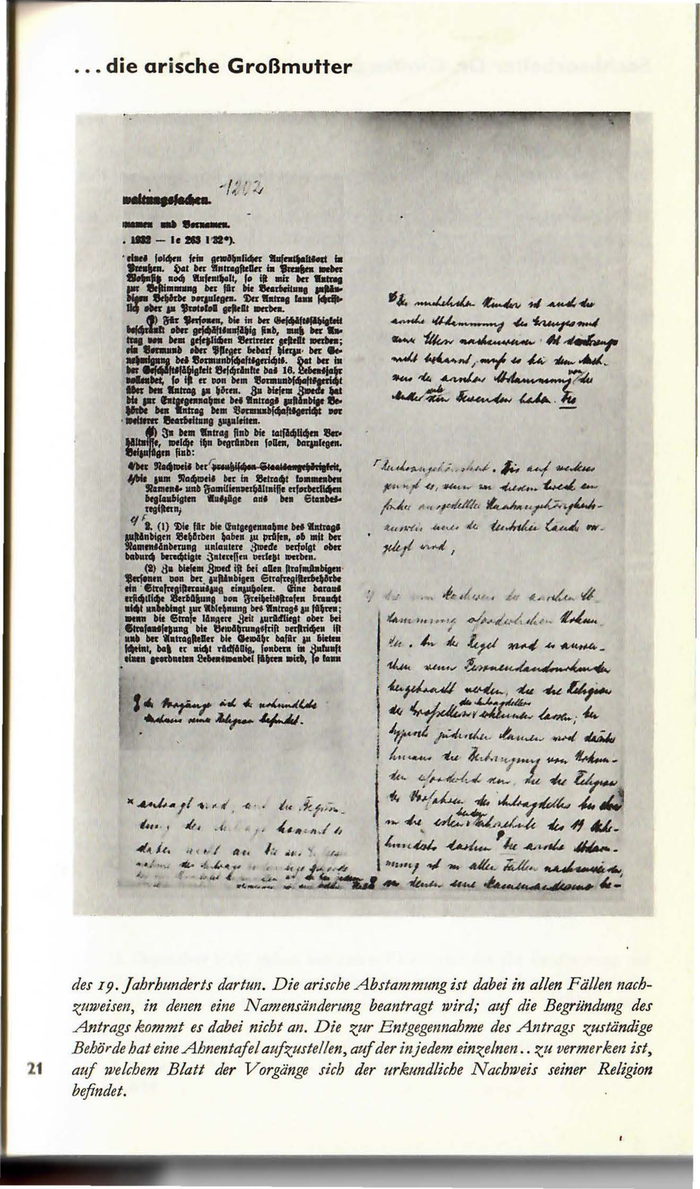 ... die arische Großmutter
1202
waltungssachen.
namen und Vornamen.
. 1932 — Ic 263 I 32*).
eines solchen sein gewöhnlicher Aufenthaltsort in
Preußen. Hat der Antragsteller in Preußen weder
Wohnsitz noch Aufenthalt, so ist mir der Antrag
zur Bestimmung der für die Bearbeitung zustän-
digen Behörde vorzulegen. Der Antrag kann schrift-
lich oder zu Protokoll gestellt werden.
Für Personen, die in der Geschäftsfähigkeit
beschränkt oder geschäftsunfähig sind, muß der An-
trag von dem gesetzlichen Vertreter gestellt werden;
ein Vormund oder Pfleger bedarf hierzu der Ge-
nehmigung des Vormundschaftsgerichts. Hat der in
der Geschäftsfähigkeit Beschränkte das 16. Lebensjahr
vollendet, so ist er von dem Vormundschaftsgericht
über den Antrag zu hören. Zu diesem Zweck hat
die zur Entgegennahme des Antrags zuständige Be-
hörde den Antrag dem Vormundschaftsgericht vor
weiterer Bearbeitung zuzuleiten.
In dem Antrag sind die tatsächlichen Ver-
hältnisse, welche ihn begründen sollen, darzulegen.
Beizufügen sind:
der Nachweis der preußischen Staatsangehörigkeit,
die zum Nachweis der in Betracht kommenden
Namens- und Familienverhältnisse erforderlichen
beglaubigten Auszüge aus den Standes-
registern,
2. (1) Die für die Entgegennahme des Antrags
zuständigen Behörden haben zu prüfen, ob mit der
Namensänderung unlautere Zwecke verfolgt oder
dadurch berechtigte Interessen verletzt werden.
(2) Zu diesem Zweck ist bei allen strafmündigen
Personen von der zuständigen Strafregisterbehörde
ein Strafregisterauszug einzuholen. Eine daraus
ersichtliche Verbüßung von Freiheitsstrafen braucht
nicht unbedingt zur Ablehnung des Antrags zu führen;
wenn die Strafe längere Zeit zurückliegt oder bei
Strafaussetzung die Bewährungsfrist verstrichen ist
und der Antragsteller die Gewähr dafür zu bieten
scheint, daß er nicht rückfällig, sondern in Zukunft
einen geordneten Lebenswandel führen wird, so kann
der Vorgänge sich der urkundliche
Nachweis seiner Religion befindet.
antragt wird, auf die Begrün-
dung des Antrags kommt es
dabei nicht an. Die
unehelichen Kinder ist auch die
arische Abstammung des Erzeugers und
seiner Eltern nachzuweisen. Ist
nicht bekannt, muß es bei dem Nach-
weis der arischen Abstammung der
Mutter sein Bewenden haben.
Reichsangehörigkeit. Bis auf weiteres
genügt es, wenn ein zu diesem Zweck ein
früher ausgestellter Staatsangehörigkeits-
ausweis eines der deutschen Länder vor-
gelegt wird,
die zum Nachweis der arischen Ab-
stammung erforderlichen Urkun-
den. In der Regel wird es ausrei-
chen wenn Personenstandsurkunden
beigebracht werden, die die Religion
der Großeltern des Antragstellers erkennen lassen; bei
typisch jüdischen Namen wird darüber
hinaus die Beibringung von Urkun-
den erforderlich sein, die die Religion
der Vorfahren des Antragstellers bis etwa
in die ersten beiden Jahrzehnte des 19. Jahr-
hunderts dartun. Die arische Abstam-
mung ist in allen Fällen nachzuweisen,
in denen eine Namensänderung be-
des 19. Jahrhunderts dartun. Die arische Abstammung ist dabei in allen Fällen nach-
zuweisen, in denen eine Namensänderung beantragt wird; auf die Begründung des
Antrags kommt es dabei nicht an. Die zur Entgegennahme des Antrags zuständige
Behörde hat eine Ahnentafel aufzustellen, auf der in jedem einzelnen .. zu vermerken ist,
auf welchem Blatt der Vorgänge sich der urkundliche Nachweis seiner Religion
befindet.
21